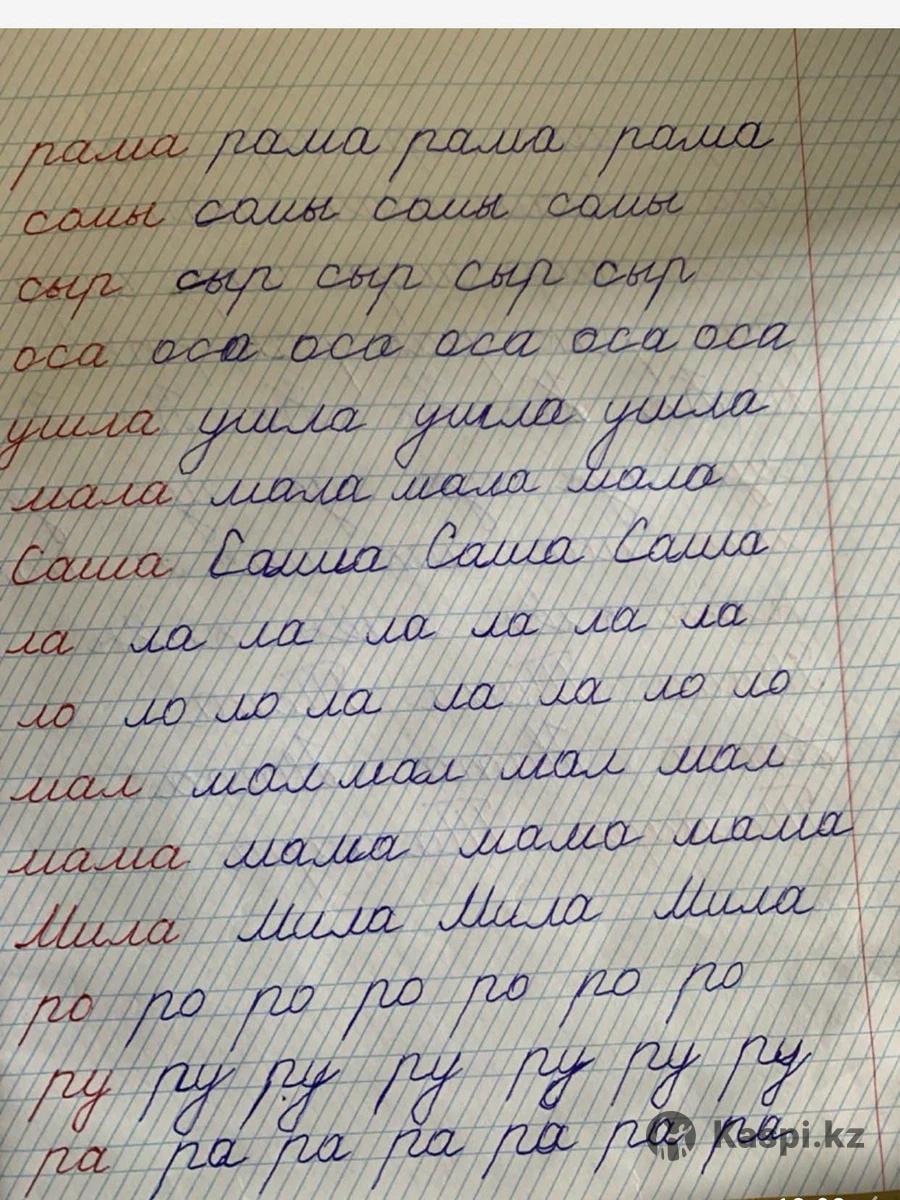 рама рама рама рама
сомы сомы сомы сомы
сыр сыр сыр сыр сыр
оса оса оса оса оса оса
ушла ушла ушла ушла
мала мала мала мала
Саша Саша Саша Саша
ла ла ла ла ла ла ла
ло ло ло ла ла ла ло ло
мал мал мал мал мал
мама мама мама мама
Мила Мила Мила Мила
ро ро ро ро ро ро ро
ру ру ру ру ру ру ру
ра ра ра ра ра ра ра
Kaspi.kz